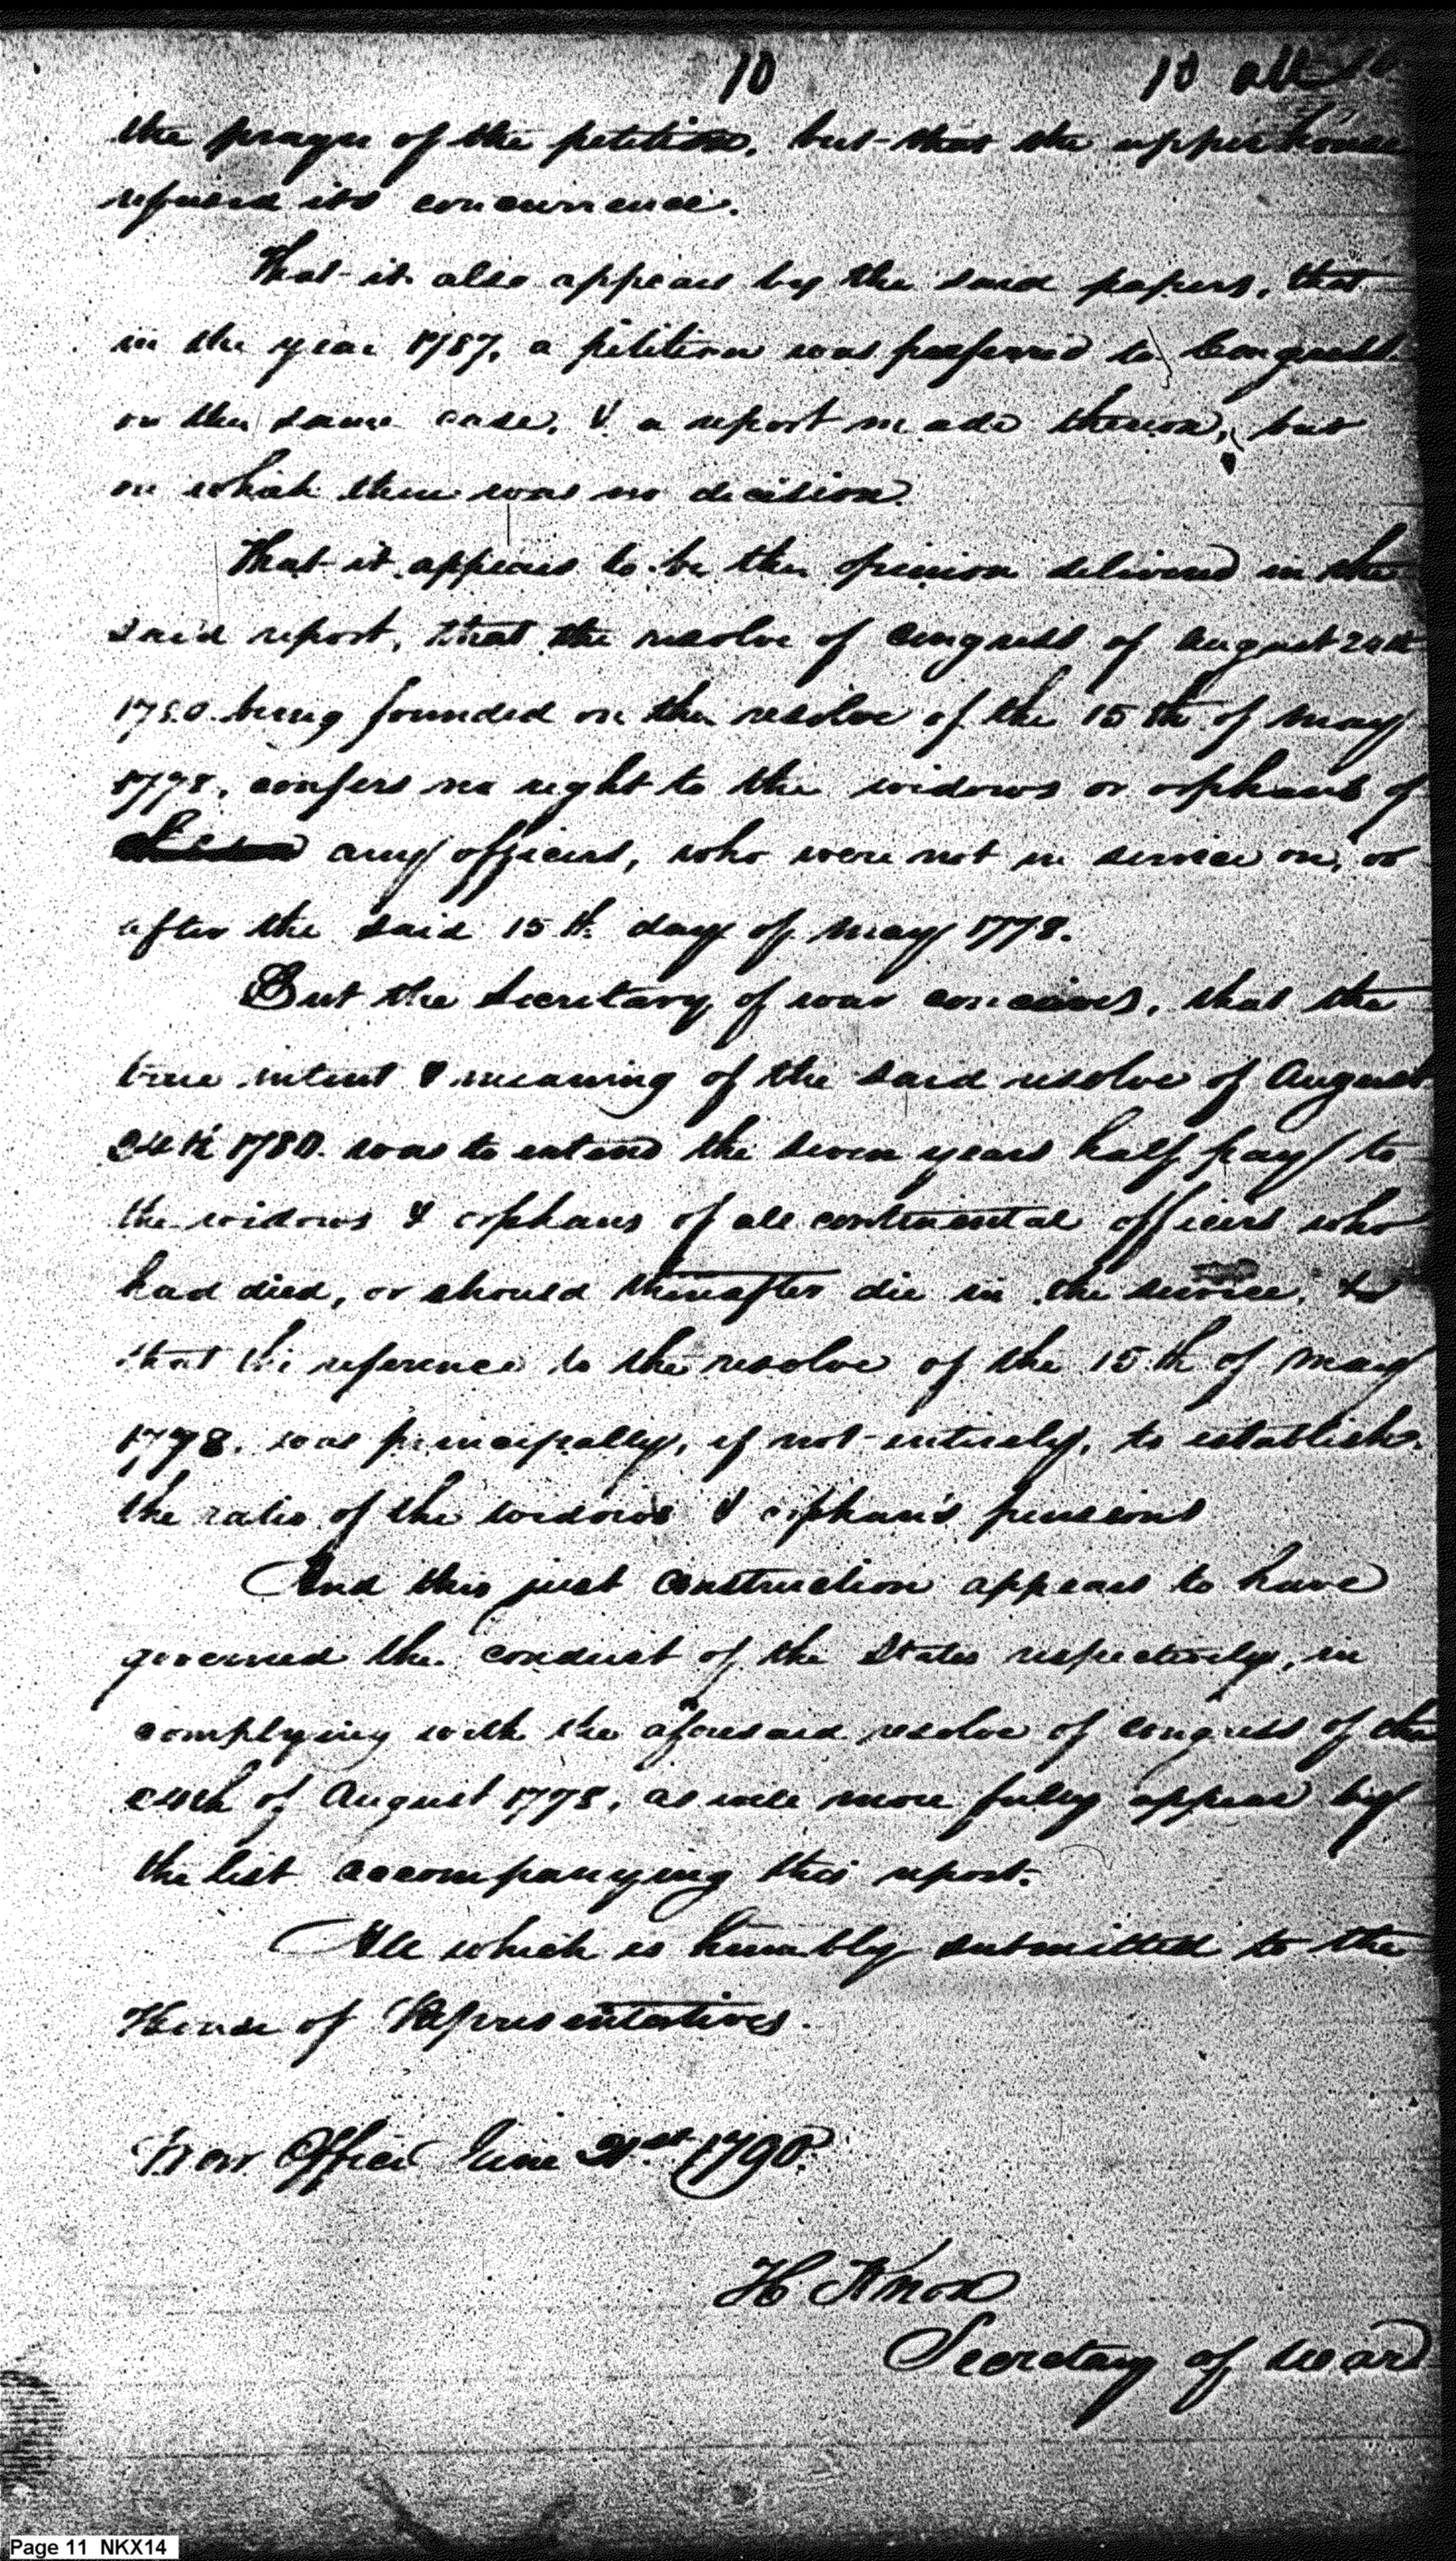 10
10
the prayer of the petition, but that the upper house
refused its concurrence.
That it also appears by the said papers, that
in the year 1787, a petition was preferred to Congress
on the same case, & a report made thereon, but
on which there was no decision.
That it appears to be the opinion delivered in the
said report, that the resolve of Congress of August 24th
1780. being founded on the resolve of the 15th of May
1778, confers no right to the widows or orphans of
any officers, who were not in service on, or
after the said 15th. day of May 1778.
But the Secretary of war conceives, that the
true intent & meaning of the said resolve of August
24th 1780. was to extend the seven years half pay to
the widows & orphans of all continental officers who
had died, or should thereafter die in the service,
that the reference to the resolve of the 15th of May
1778. was principally, if not entirely, to establish
the ratio of the widows & orphan's pensions
And this just construction appears to have
governed the conduct of the States respectively, in
complying with the aforesaid resolve of Congress of the
24th of August 1778, as will more fully appear by
the list accompanying this report.
All which is humbly submitted to the
House of Representatives.
War Office June 21st. 1790.
H Knox
Secretary of War
Page 11 NKX14